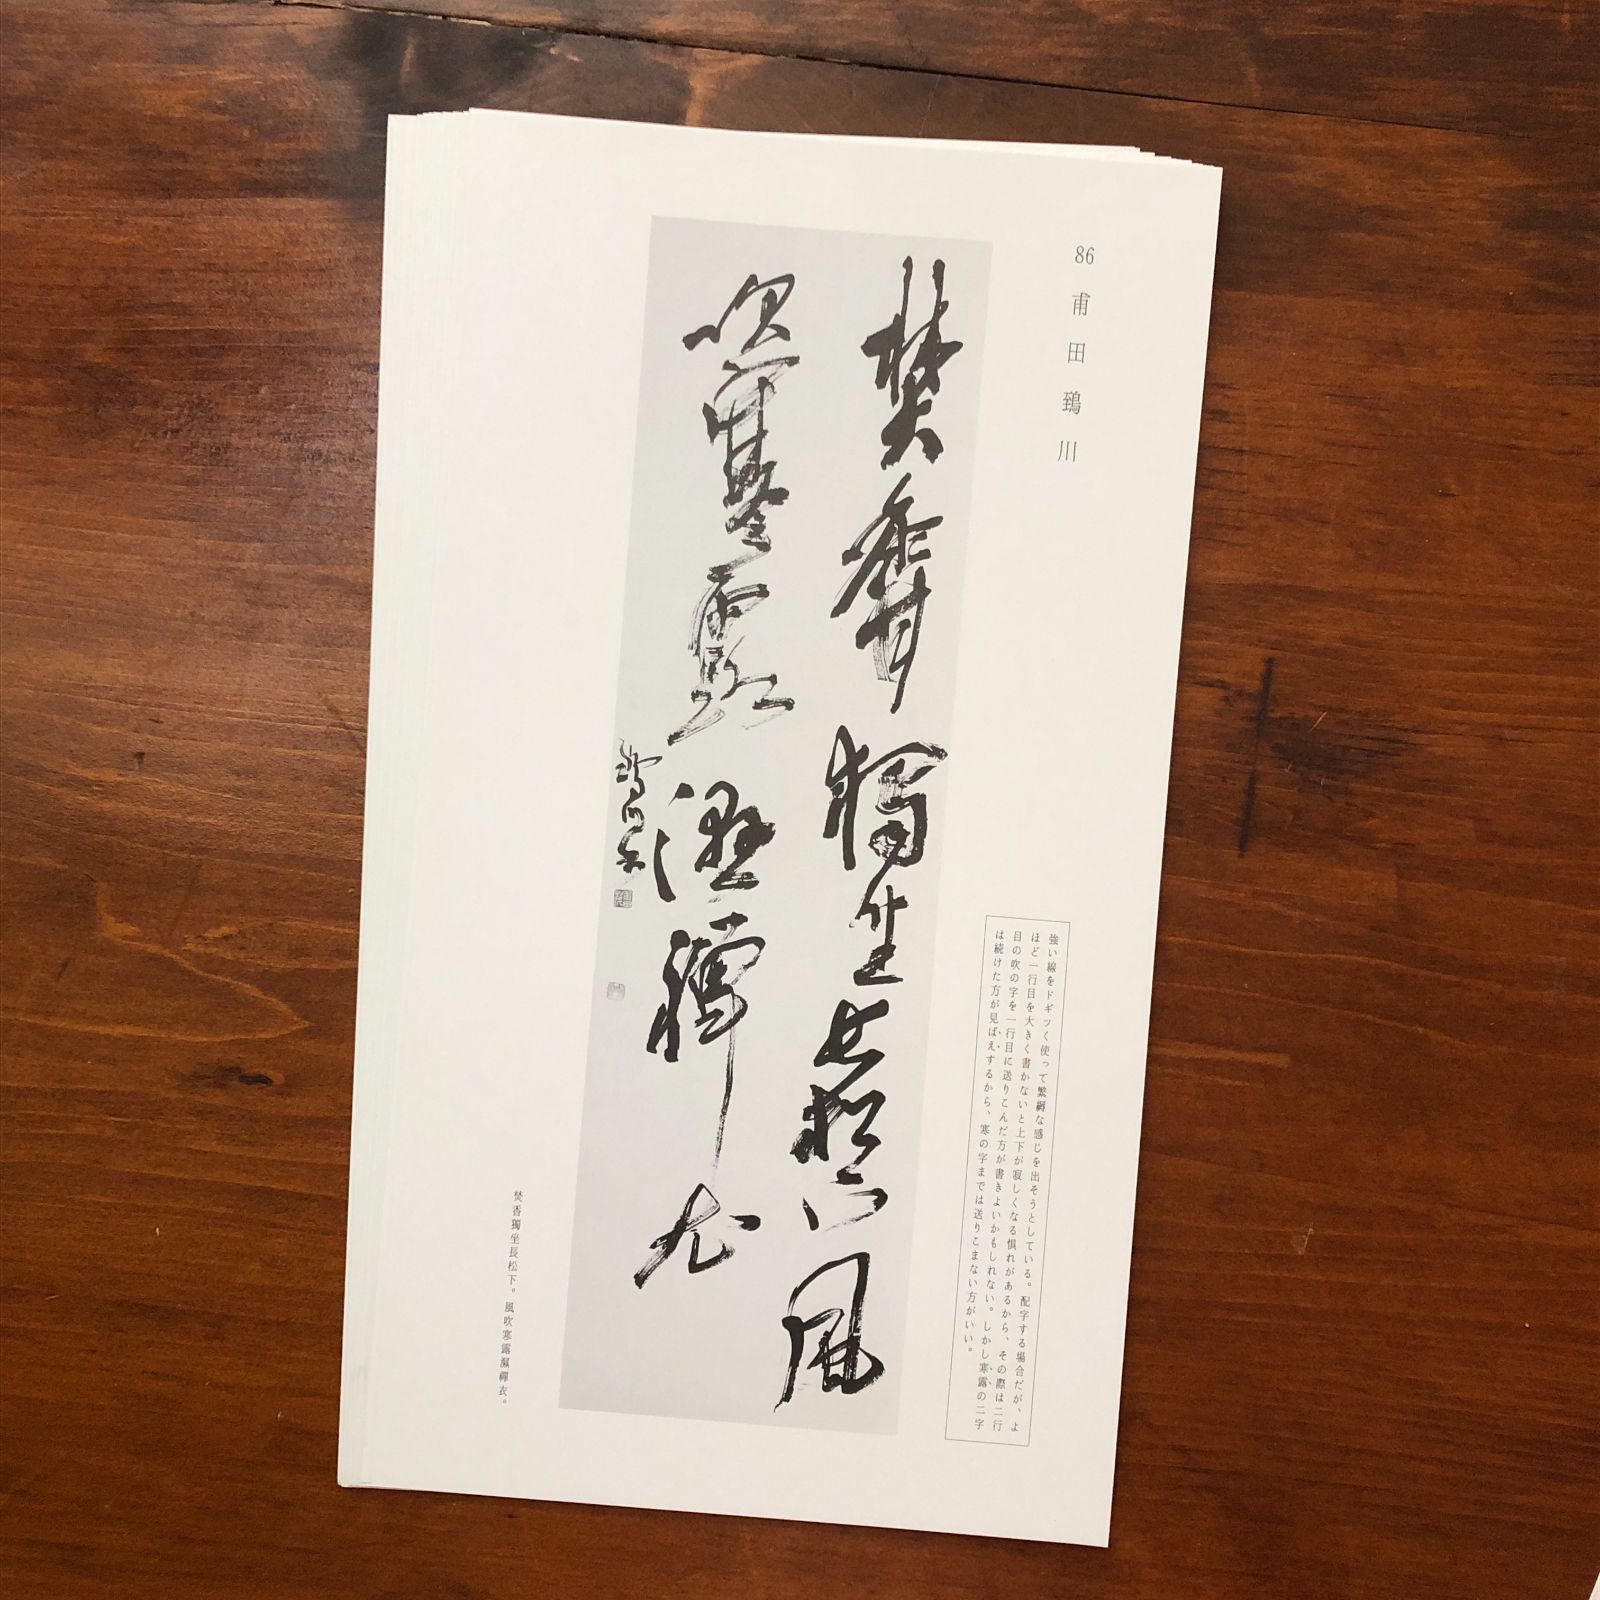 86 甫田鵄川
強い線をドギツく使って繁褥な感じを出そうとしている。配字する場合だが、よ
ほど一行目を大きく書かないと上下が寂しくなる惧れがあるから、その際は二行
目の吹の字を一行目に送りこんだ方が書きよいかもしれない。しかし寒露の二字
は続けた方が見ばえするから、寒の字までは送りこまない方がいい。
焚香獨坐長松下風
吹寒露濕禪衣
鵄川
焚香獨坐長松下。風吹寒露濕禪衣。